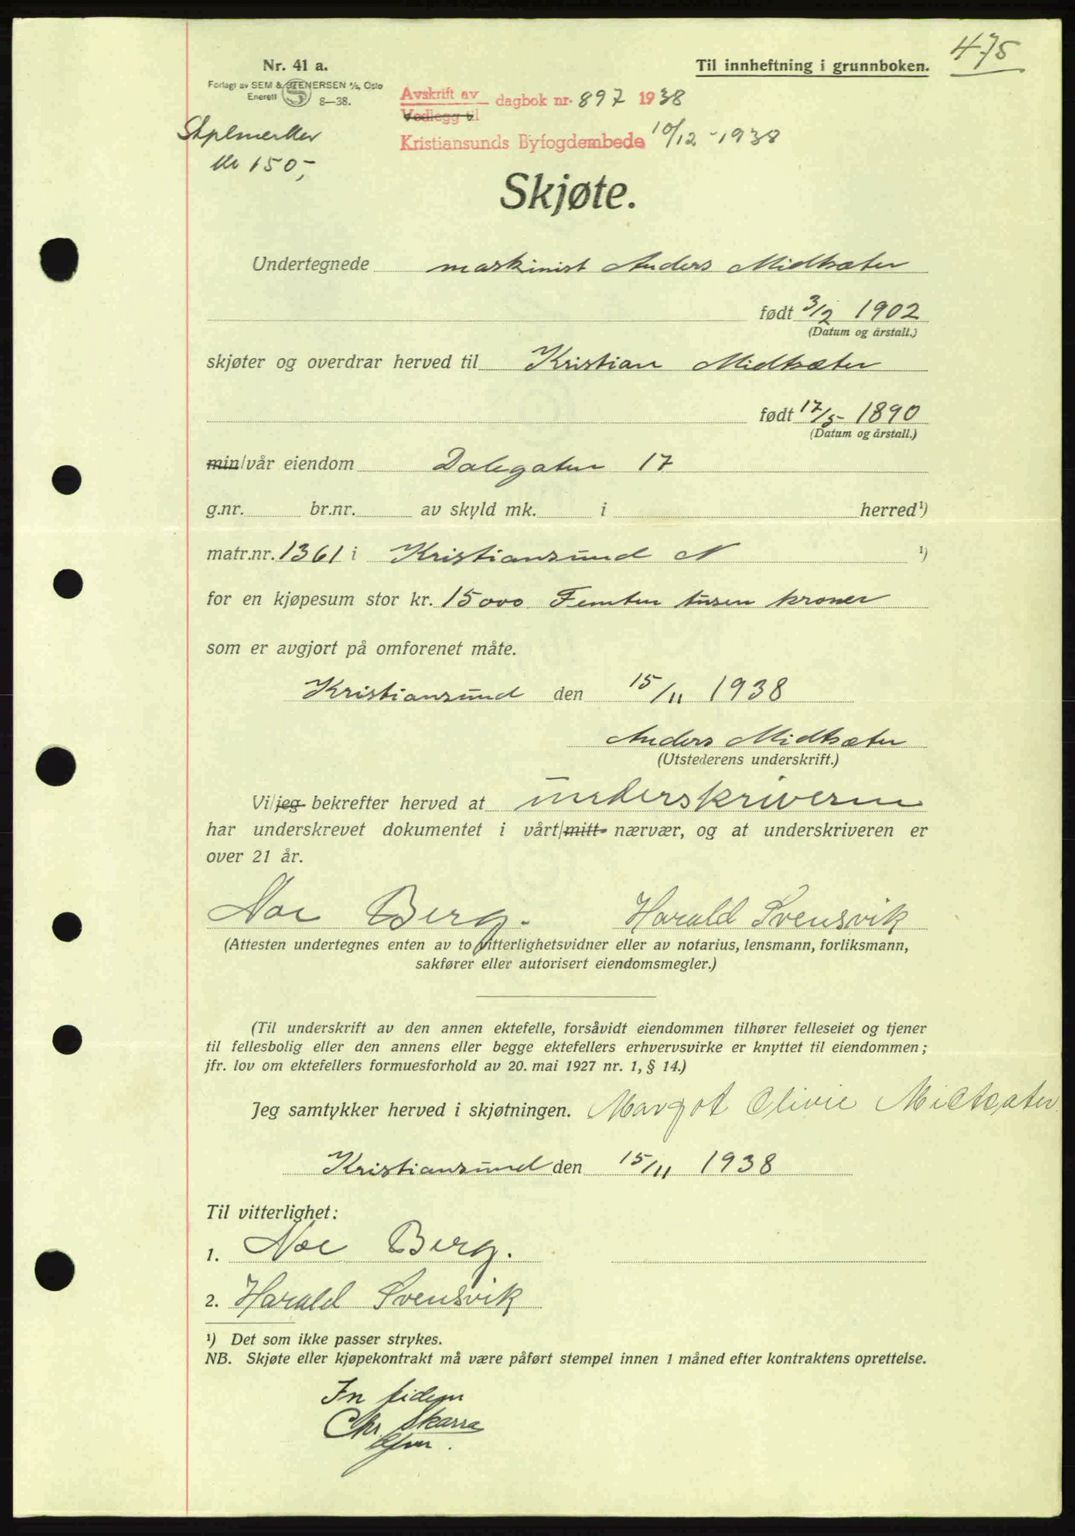 475
Nr. 41 a.
Til innheftning i grunnboken.
Forlagt av SEM & STENERSEN A/S, Oslo
Enerett S 8—38.
Avskrift av
Vedlegg til
dagbok nr. 897 1938
Kristiansunds Byfogdembede 10/12 - 1938
Stplmerker
kr 150,-
Skjøte.
Undertegnede maskinist Anders Midtsæter
født 3/2 1902
(Datum og årstall.)
skjøter og overdrar herved til Kristian Midtsæter
født 17/5 - 1890
(Datum og årstall.)
min/vår eiendom Dalegaten 17
g.nr. br.nr. av skyld mk. i herred¹)
matr.nr. 1361 i Kristiansund N ¹)
for en kjøpesum stor kr. 15000 Femten tusen kroner
som er avgjort på omforenet måte.
Kristiansund den 15/11 1938
Anders Midtsæter
(Utstederens underskrift.)
Vi/jeg bekrefter herved at underskriveren
har underskrevet dokumentet i vårt/mitt nærvær, og at underskriveren er
over 21 år.
Noe Berg. Harald Svensvik
(Attesten undertegnes enten av to vitterlighetsvidner eller av notarius, lensmann, forliksmann,
sakfører eller autorisert eiendomsmegler.)
(Til underskrift av den annen ektefelle, forsåvidt eiendommen tilhører felleseiet og tjener
til fellesbolig eller den annens eller begge ektefellers erhvervsvirke er knyttet til eiendommen;
jfr. lov om ektefellers formuesforhold av 20. mai 1927 nr. 1, § 14.)
Jeg samtykker herved i skjøtningen. Margot Olivie Midtsæter
Kristiansund den 15/11 1938
Til vitterlighet:
1. Noe Berg.
2. Harald Svensvik
¹) Det som ikke passer strykes.
NB. Skjøte eller kjøpekontrakt må være påført stempel innen 1 måned efter kontraktens oprettelse.
In fidem
Chr. Skarra